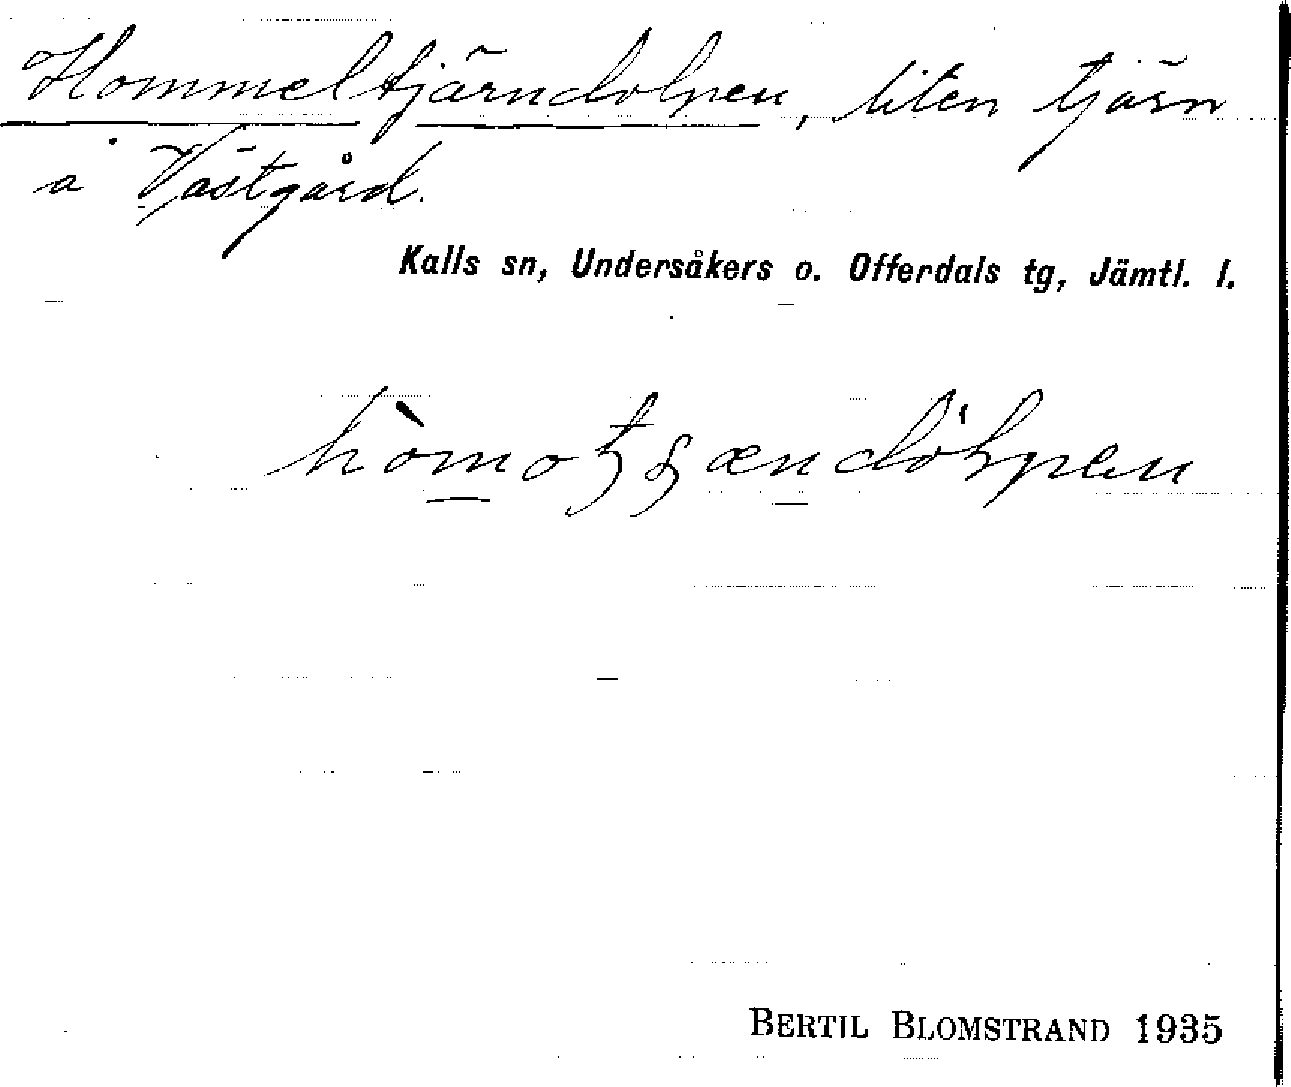 Hommeltjärndolpen, liten tjärn
å Västgård.
Kalls sn, Undersåkers o. Offerdals tg, Jämtl. l.
BERTIL BLOMSTRAND 1935